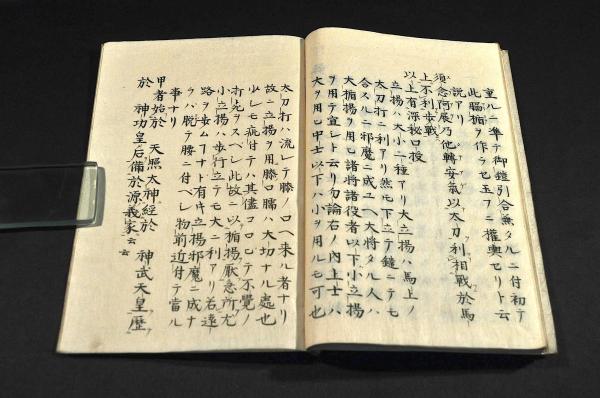 重ルニ準テ御鎧引合無タルニ付初テ
此脇楯ヲ作ラセ玉フニ權輿セリト云
説アリ
須念阿展乃他轉安氣以太刀利相戰於馬
上不利歩戰
以上有深秘口授
立揚ハ大小二種アリ大立揚ハ馬上ノ
太刀打ニ利アリ然モ下立テ鑓ニテモ
合スルニ邪魔ニ成ユヘ大將タル人ハ
大楯揚ヲ用モ諸將諸役者以下小立揚
ヲ用テ宜シト云リ勿論右ノ内上士ハ
大ヲ用ヒ中士以下ハ小ヲ用ルモ可也
太刀打ハ流レテ膝ノ口ヘ来ル者ナリ
故ニ立揚ヲ用膝口臑ハ大切ナル處也
少レモ疵付テハ其儘コロビテ不覺ノ
打死ヲスベシ此故ニ以楯揚厭急所尤
小立揚ハ歩行立テモ大ニ利アリ若遠
路ヲ歩ムフナト有キ立揚邪魔ニ成ナ
ラハ脱テ腰ニ付ベレ物前近付テ當ル
事ナリ
甲者始於 天照太神經於 神武天皇歴
於 神功皇后備於源義家云云